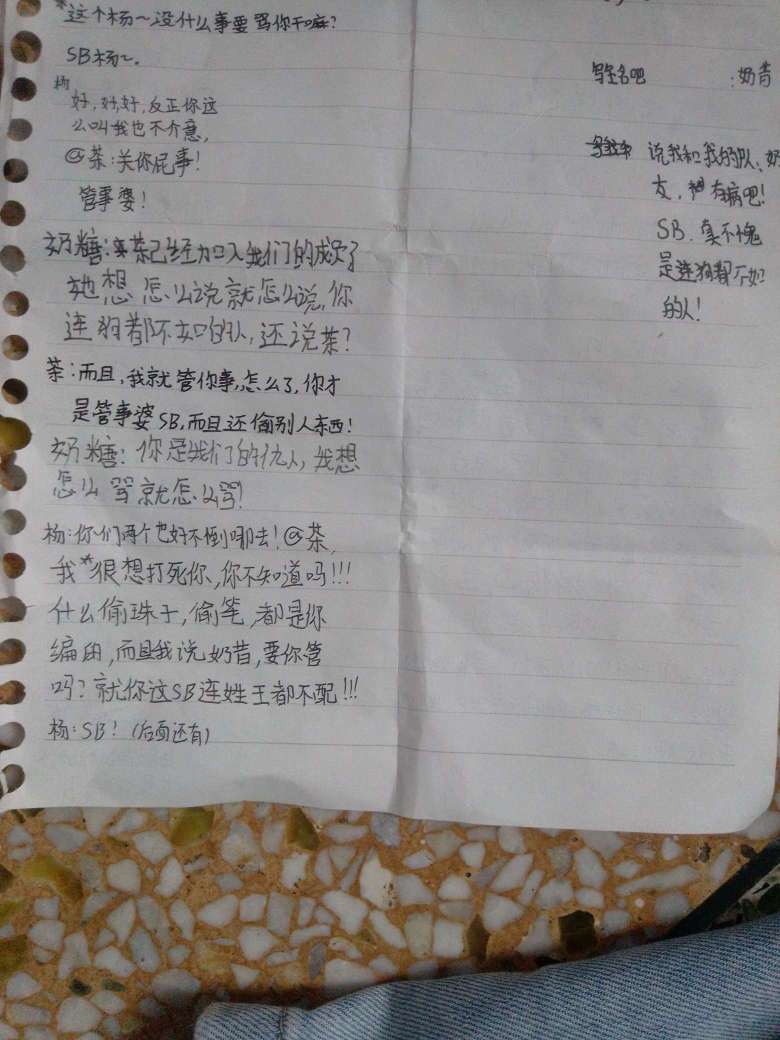 *这个杨~没什么事要骂你干嘛?
SB杨~.
杨
好,好,好,反正你这
么叫我也不介意,
@茶:关你屁事!
管事婆!
奶糖:茶已经加入我们的成员了
她想怎么说就怎么说,你
连狗都不如的队,还说茶?
茶:而且,我就管你事,怎么了,你才
是管事婆SB,而且还偷别人东西!
奶糖:你是我们的仇人,我想
怎么骂就怎么骂!
杨:你们两个也好不倒哪去!@茶,
我*很想打死你,你不知道吗!!!
什么偷珠子,偷笔,都是你
编的,而且我说奶昔,要你管
吗?就你这SB连姓王都不配!!!
杨:SB!(后面还有)
写全名吧 :奶昔
说我和我的队、奶
友,有病吧!
SB.真不愧
是连狗都不如
的人!